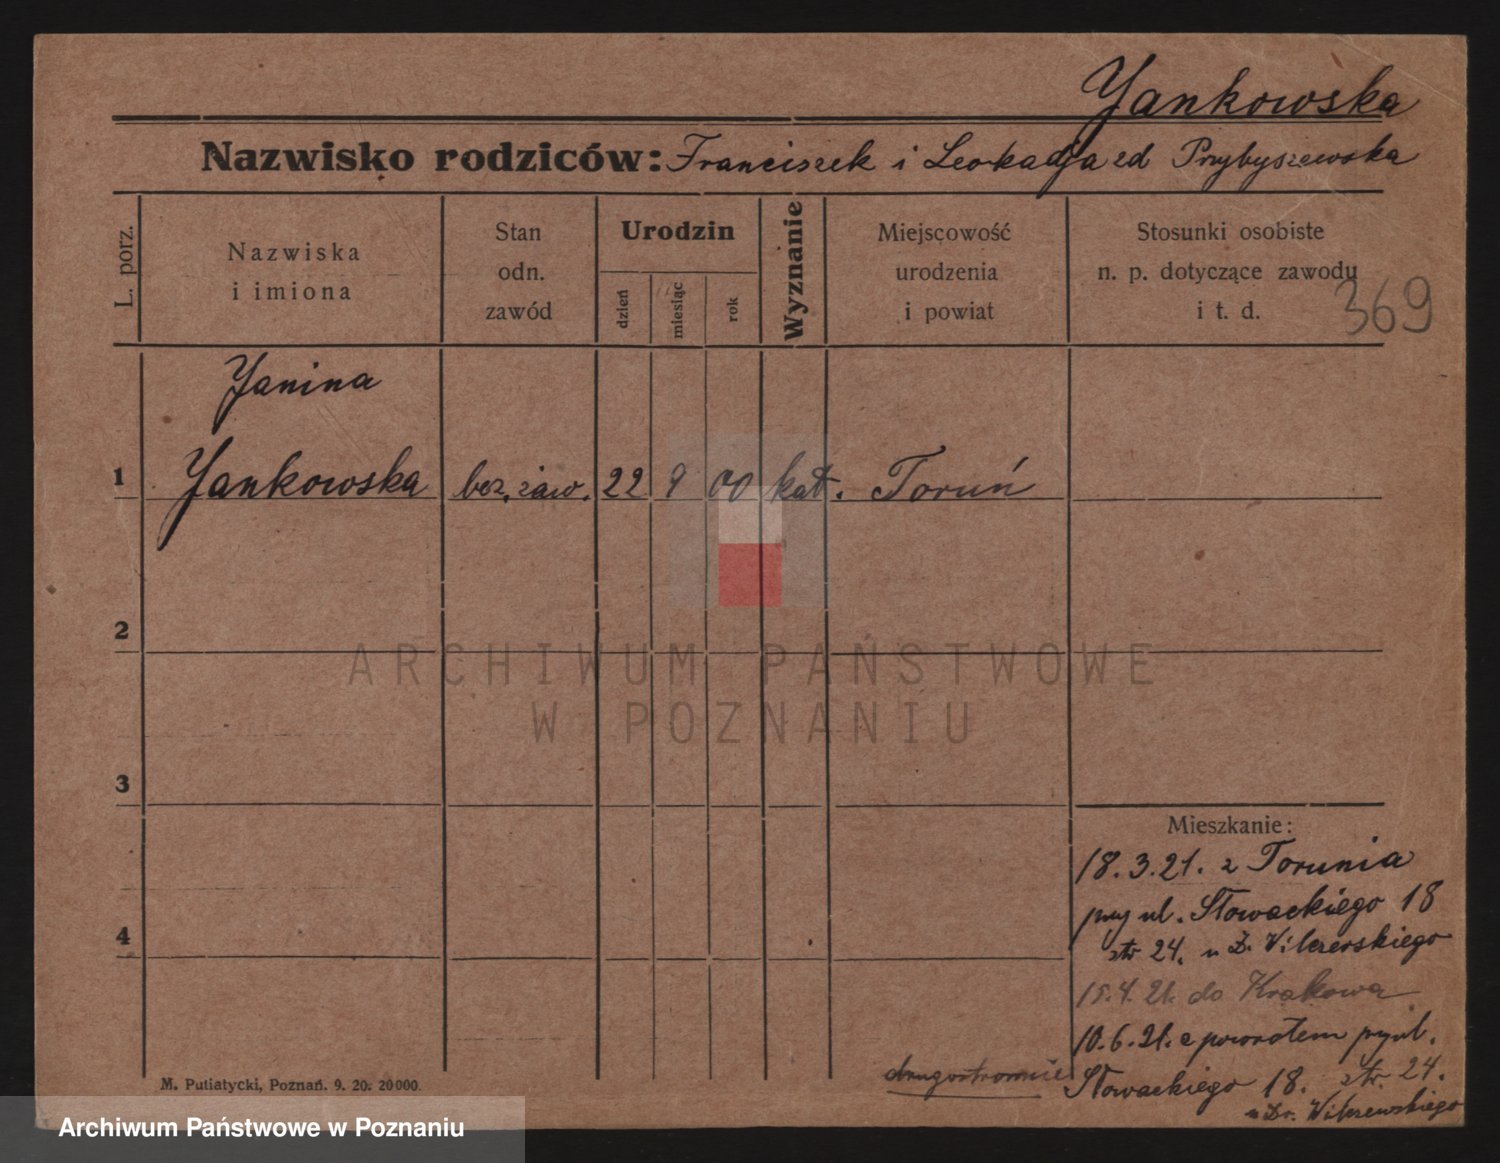 Yankowska
Nazwisko rodziców: Franciszek i Leokadja zd Przybyszewska
L. porz.
Nazwiska
i imiona
Stan
odn.
zawód
Urodzin
dzień
miesiąc
rok
Wyznanie
Miejscowość
urodzenia
i powiat
Stosunki osobiste
n. p. dotyczące zawodu
i t. d.
369
Yanina
1 Yankowska bez. zaw. 22 9 00 kat. Toruń
2
ARCHIWUM PAŃSTWOWE
W POZNANIU
3
Mieszkanie:
18.3.21. z Torunia
przy ul. Słowackiego 18
ztr 24. u D. Wilczewskiego
15.4.21. do Krakowa
4
10.6.21. z powrotem przy ul.
drugostronnie Słowackiego 18. ztr. 24.
u Dr. Wilczewskiego
M. Putiatycki, Poznań. 9. 20. 20000.
Archiwum Państwowe w Poznaniu